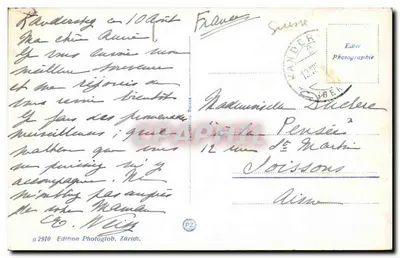 Kandersteg ce 10 Août
Ma chère Annie!
Je vous envoie mon
meilleur souvenir
et me réjouis de
vous revoir bientôt
Je fais des promenades
merveilleuses; quel
malheur que vous
ne puissiez m'y
accompagner. Ne
m'oubliez pas auprès
de votre Maman
France
Suisse
KANDERSTEG
Echte
Photographie
Mademoiselle Duclerc
"La Pensée"
12 rue St Martin
Soissons
Aisne
PZ
9 2910 Edition Photoglob, Zürich.